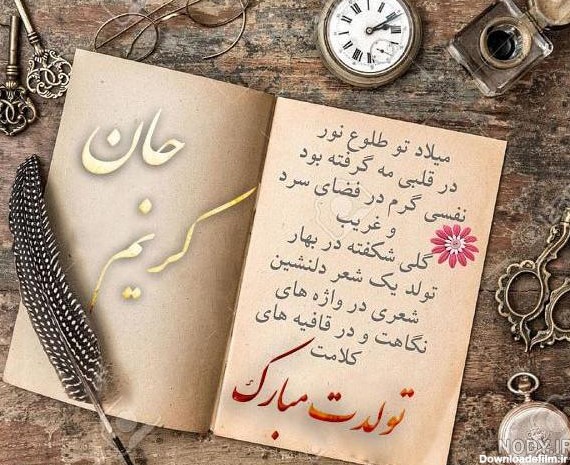 جان
کریم
میلاد تو طلوع نور
در قلبی مه گرفته بود
نفسی گرم در فضای سرد
و غریب
گلی شکفته در بهار
تولد یک شعر دلنشین
شعری در واژه های
نگاهت و در قافیه های
کلامت
تولدت مبارک
NODY.IR
Downloadefilm.ir